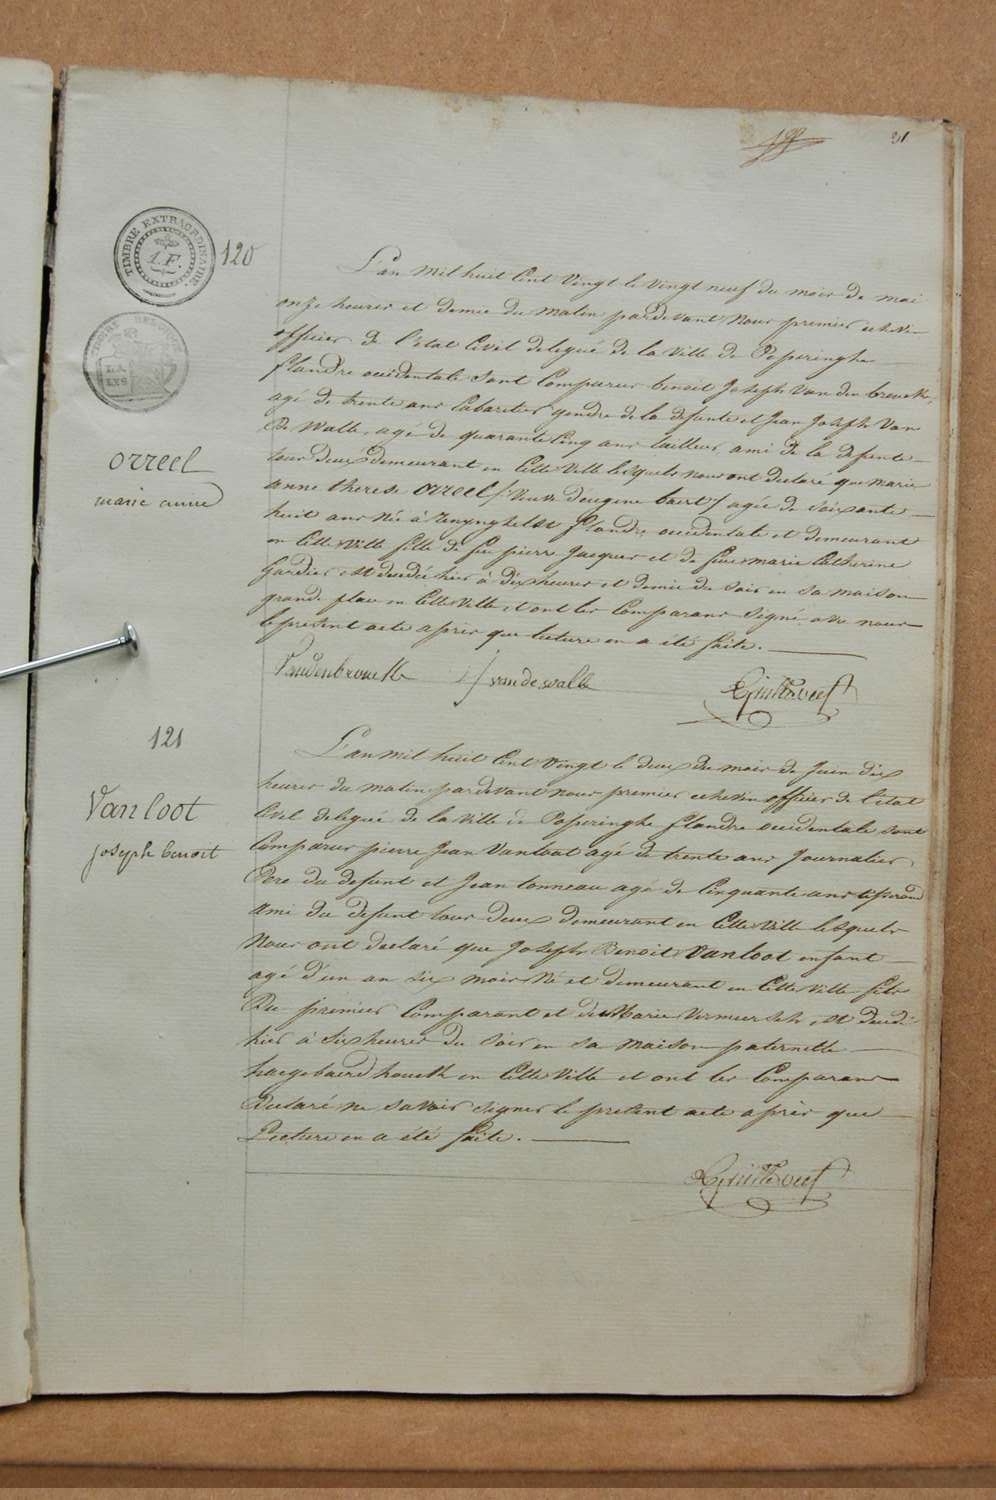 31
TIMBRE EXTRAORDINAIRE.
1. F.
120
L'an Mil huit Cent Vingt le Vingt neuf du mois de mai
onze heures et demie du matin pardevant Nous premier echevin
officier de l'etat Civil delegué de la ville de Poperinghe
flandre occidentale Sont Comparus benoit Joseph Vandenbroucke
agé de trente ans Cabaretier gendre de la defunte et Jean Joseph Van
De Walle, agé de quarante Cinq ans tailleur, ami de la defunte
tous deux demeurant en Cette Ville lesquels nous ont declaré que marie
anne therese orreel / Veuve d'eugene baert / agée de Soixante
huit ans Née à Renynghelst flandre occidentale et demeurant
en Cette Ville fille de feu pierre Jacques et de feue marie Catherine
Gardier est decedée hier à dix heures et demie du Soir en sa maison
grande place en Cette Ville, et ont les Comparans Signé avec nous
le present acte après que lecture en a été faite.
orreel
marie anne
Vandenbroucke
vandewalle
121
L'an Mil huit Cent Vingt le deux du mois de Juin dix
heures du matin pardevant nous premier echevin officier de l'etat
Civil delegué de la Ville de Poperinghe flandre occidentale sont
Comparus pierre Jean Vanloot agé de trente ans Journalier
Pere du defunt et Jean tonneau agé de Cinquante ans tisserand
Ami du defunt tous deux demeurant en Cette Ville lesquels
Nous ont declaré que Joseph Benoit Vanloot enfant
agé d'un an six mois Né et demeurant en Cette Ville fils
Du premier Comparant et de Marie Vermeersch, est decedé
hier à six heures du Soir en sa maison paternelle
en Cette Ville et ont les Comparans
Declaré ne savoir signer le present acte après que
Lecture en a été faite.
Vanloot
Joseph benoit